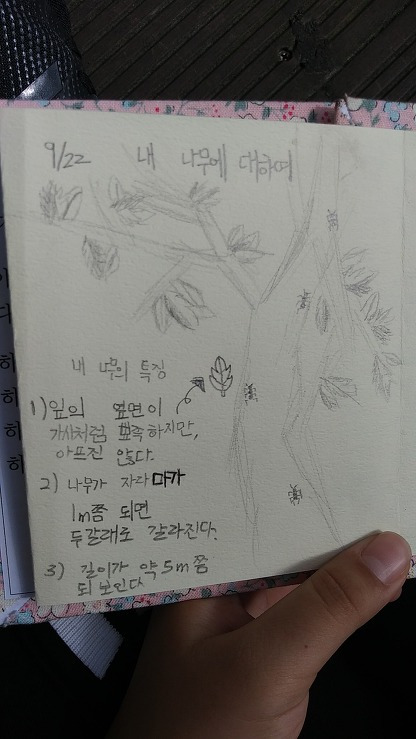 9/22 내 나무에 대하여
내 나무의 특징
1) 잎의 옆면이
가시처럼 뾰족하지만,
아프진 않다.
2) 나무가 자라다가
1m쯤 되면
두갈래로 갈라진다.
3) 길이가 약 5m쯤
되 보인다